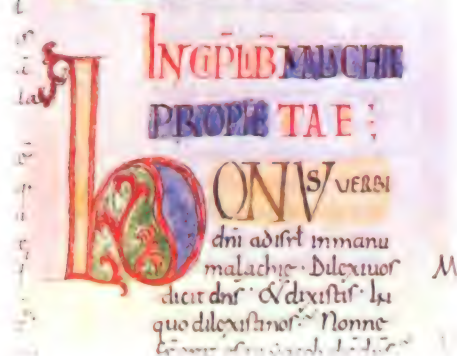 INCIP̄ LIB̄ MALACHIE
PROPHETAE :
ONVS VERBI
dn̄i ad isrl̄ inmanu
malachie · Dilexiuos
dicit dn̄s · & dixistis · In
quo dilexisti nos · Nonne